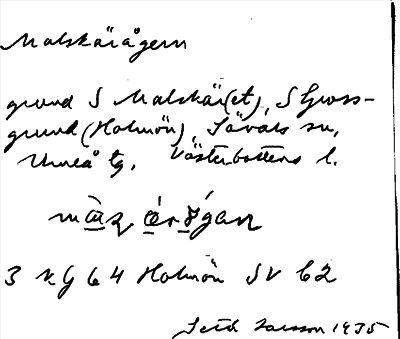 Malskärågern
grund S Malskär(et), S Gross-
grund (Holmön), Sävars sn,
Umeå tg, Västerbottens l.
3 NG 64 Holmön SV 62
Seth Larsson 1935